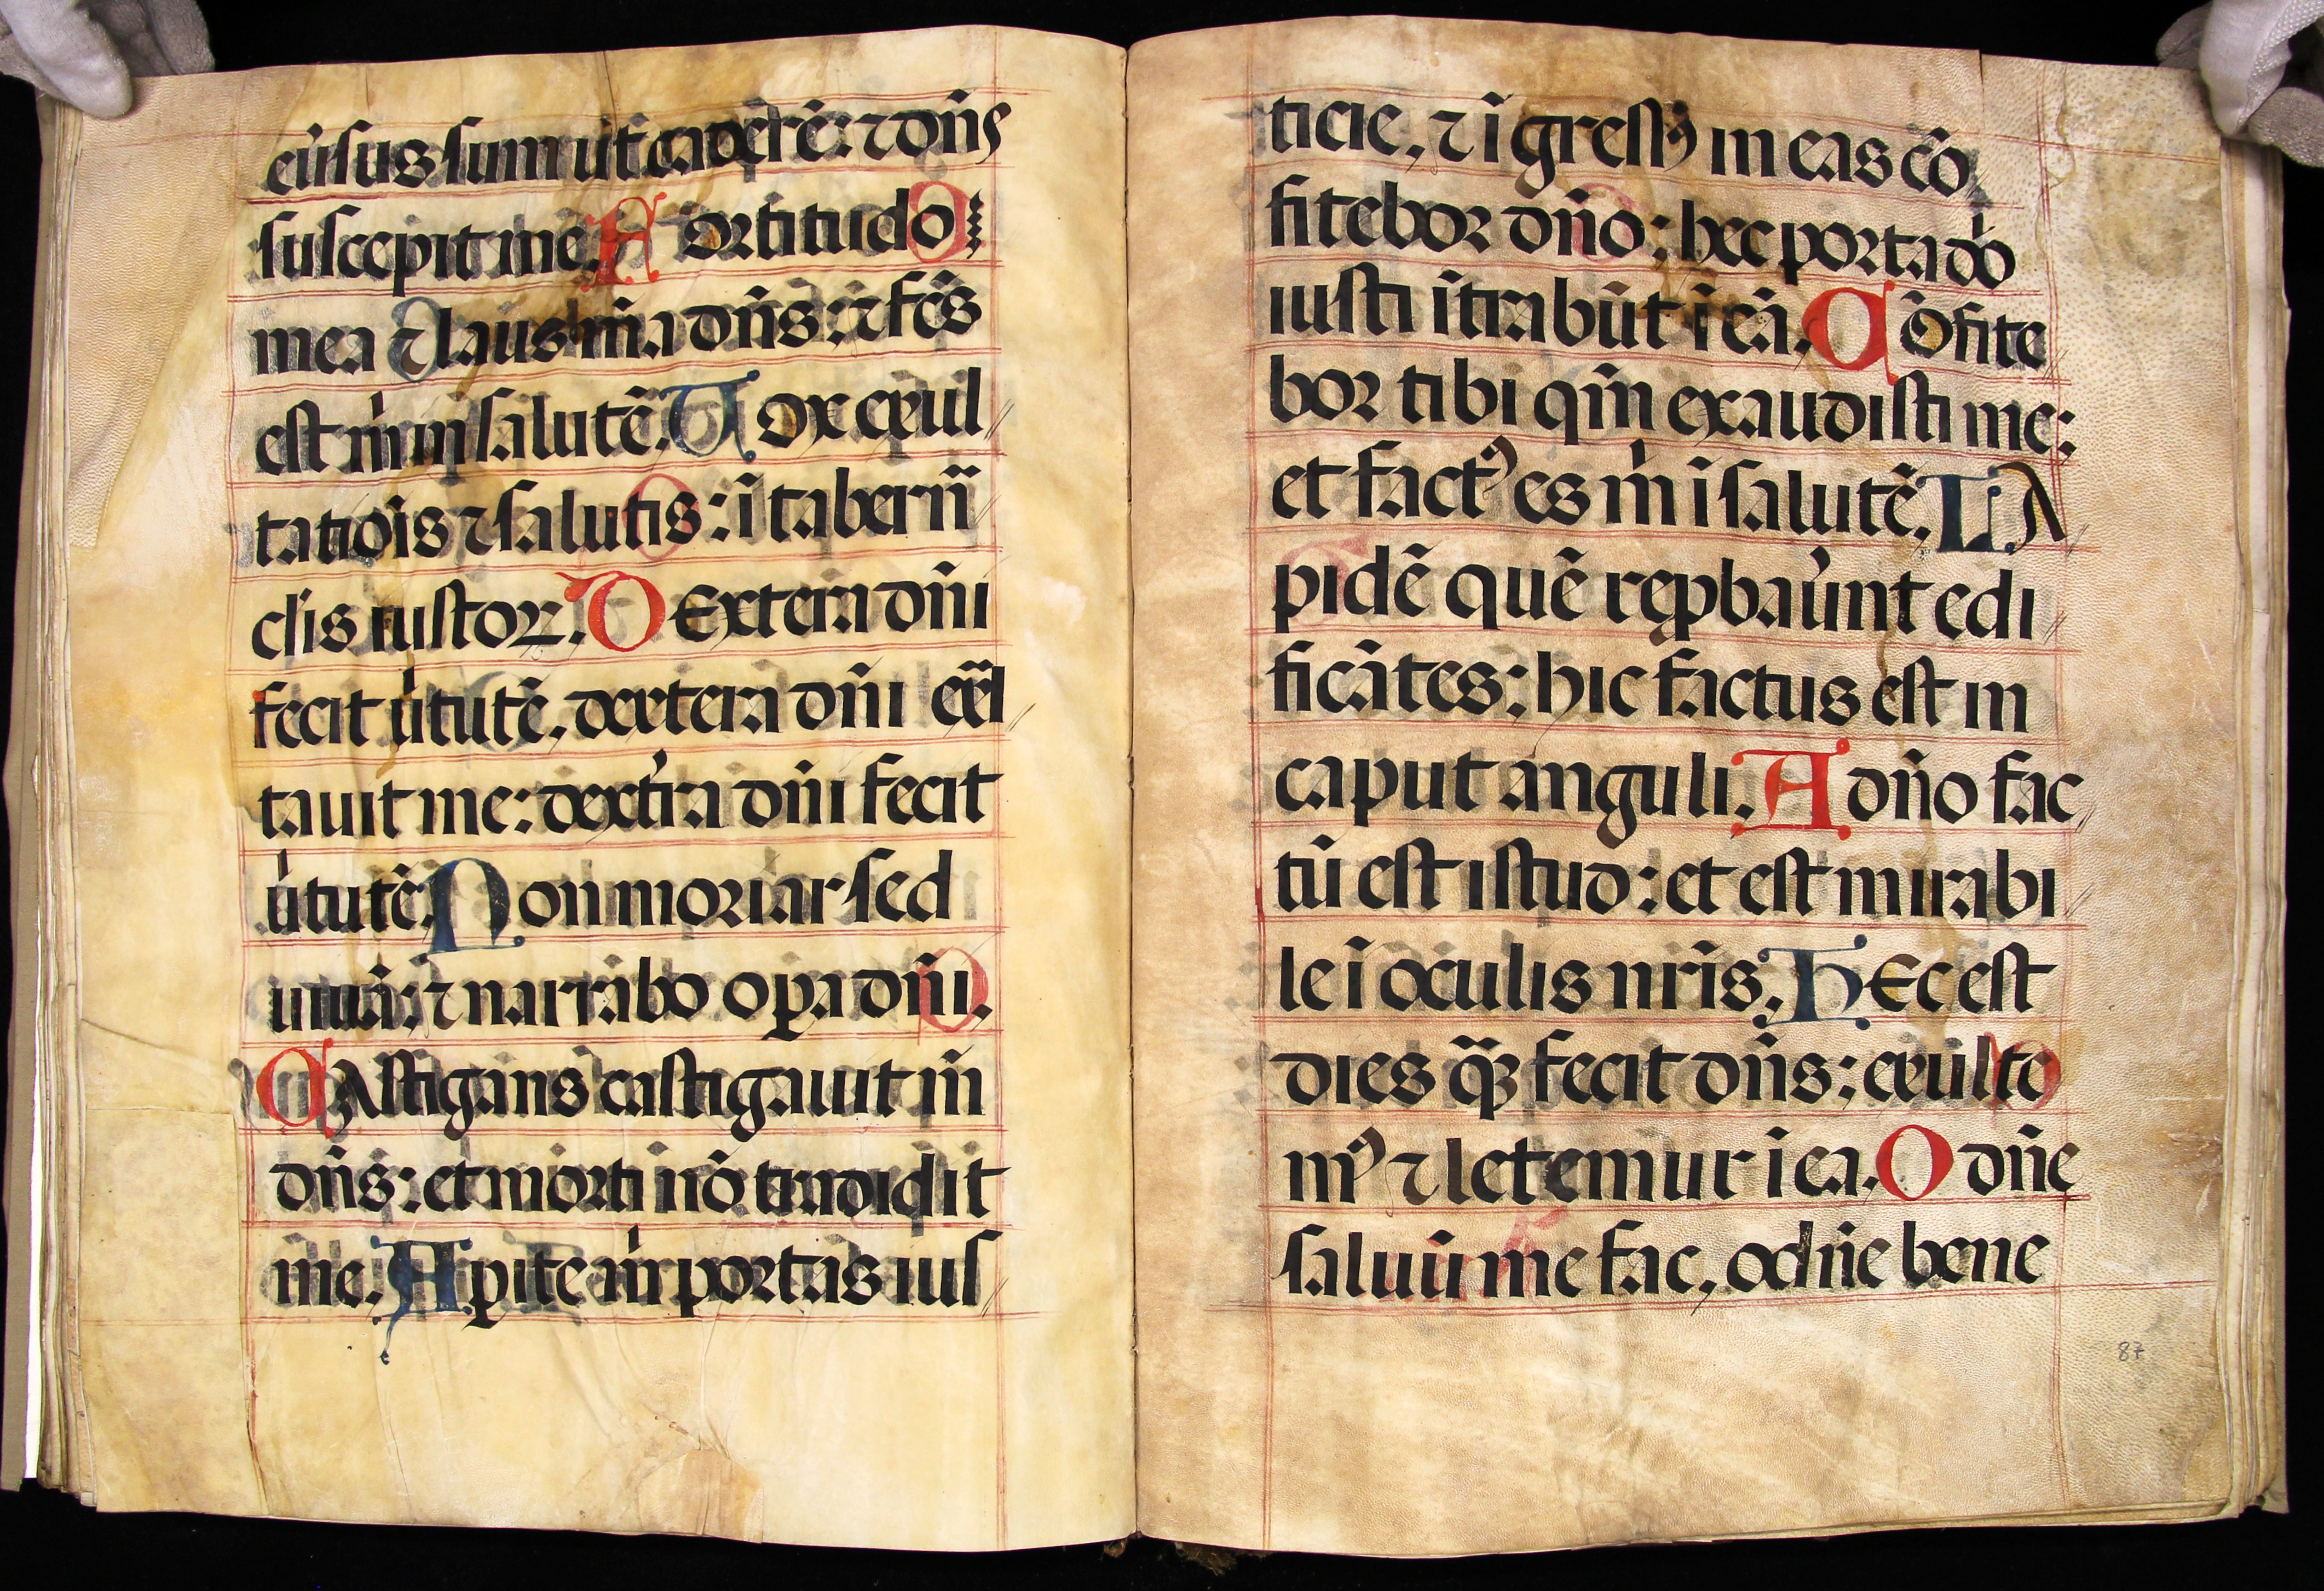 eu̾sus sum ut caderē: ⁊ dn̄s
suscepit me. Fortitudo
mea ⁊ laus mā dn̄s: ⁊ fc̄s
est m̍ in salutē. Vox exul
tatiōis ⁊ salutis: ī tabern̄
cl̄is iustoꝝ. Dextera dn̄i
fecit u̍tutē, dextera dn̄i exl̄
tauit me: dext̾ra dn̄i fecit
u̍tutē. Non moriar sed
uiuā: ⁊ narrabo oꝑa dn̄i.
Castigans castigauit m̄
dn̄s: et morti nō tradidit
me. Aꝑite m̍ portas ius
ticie, ⁊ īgressꝰ in eas cō
fitebor dn̄o: hec porta dō
iusti ītrabūt ī eā. Cōfite
bor tibi qm̄ exaudisti me:
et factꝰ es m̍ ī salutē. La
pidē quē reꝓbau̾unt edi
ficātes: hic factus est in
caput anguli. A dn̄o fac
tū est istud: et est mirabi
le ī oculis nr̄is. Hec est
dies quā fecit dn̄s: exulte
mꝰ ⁊ letemur ī ea. O dn̄e
saluū me fac, o dn̄e bene
87